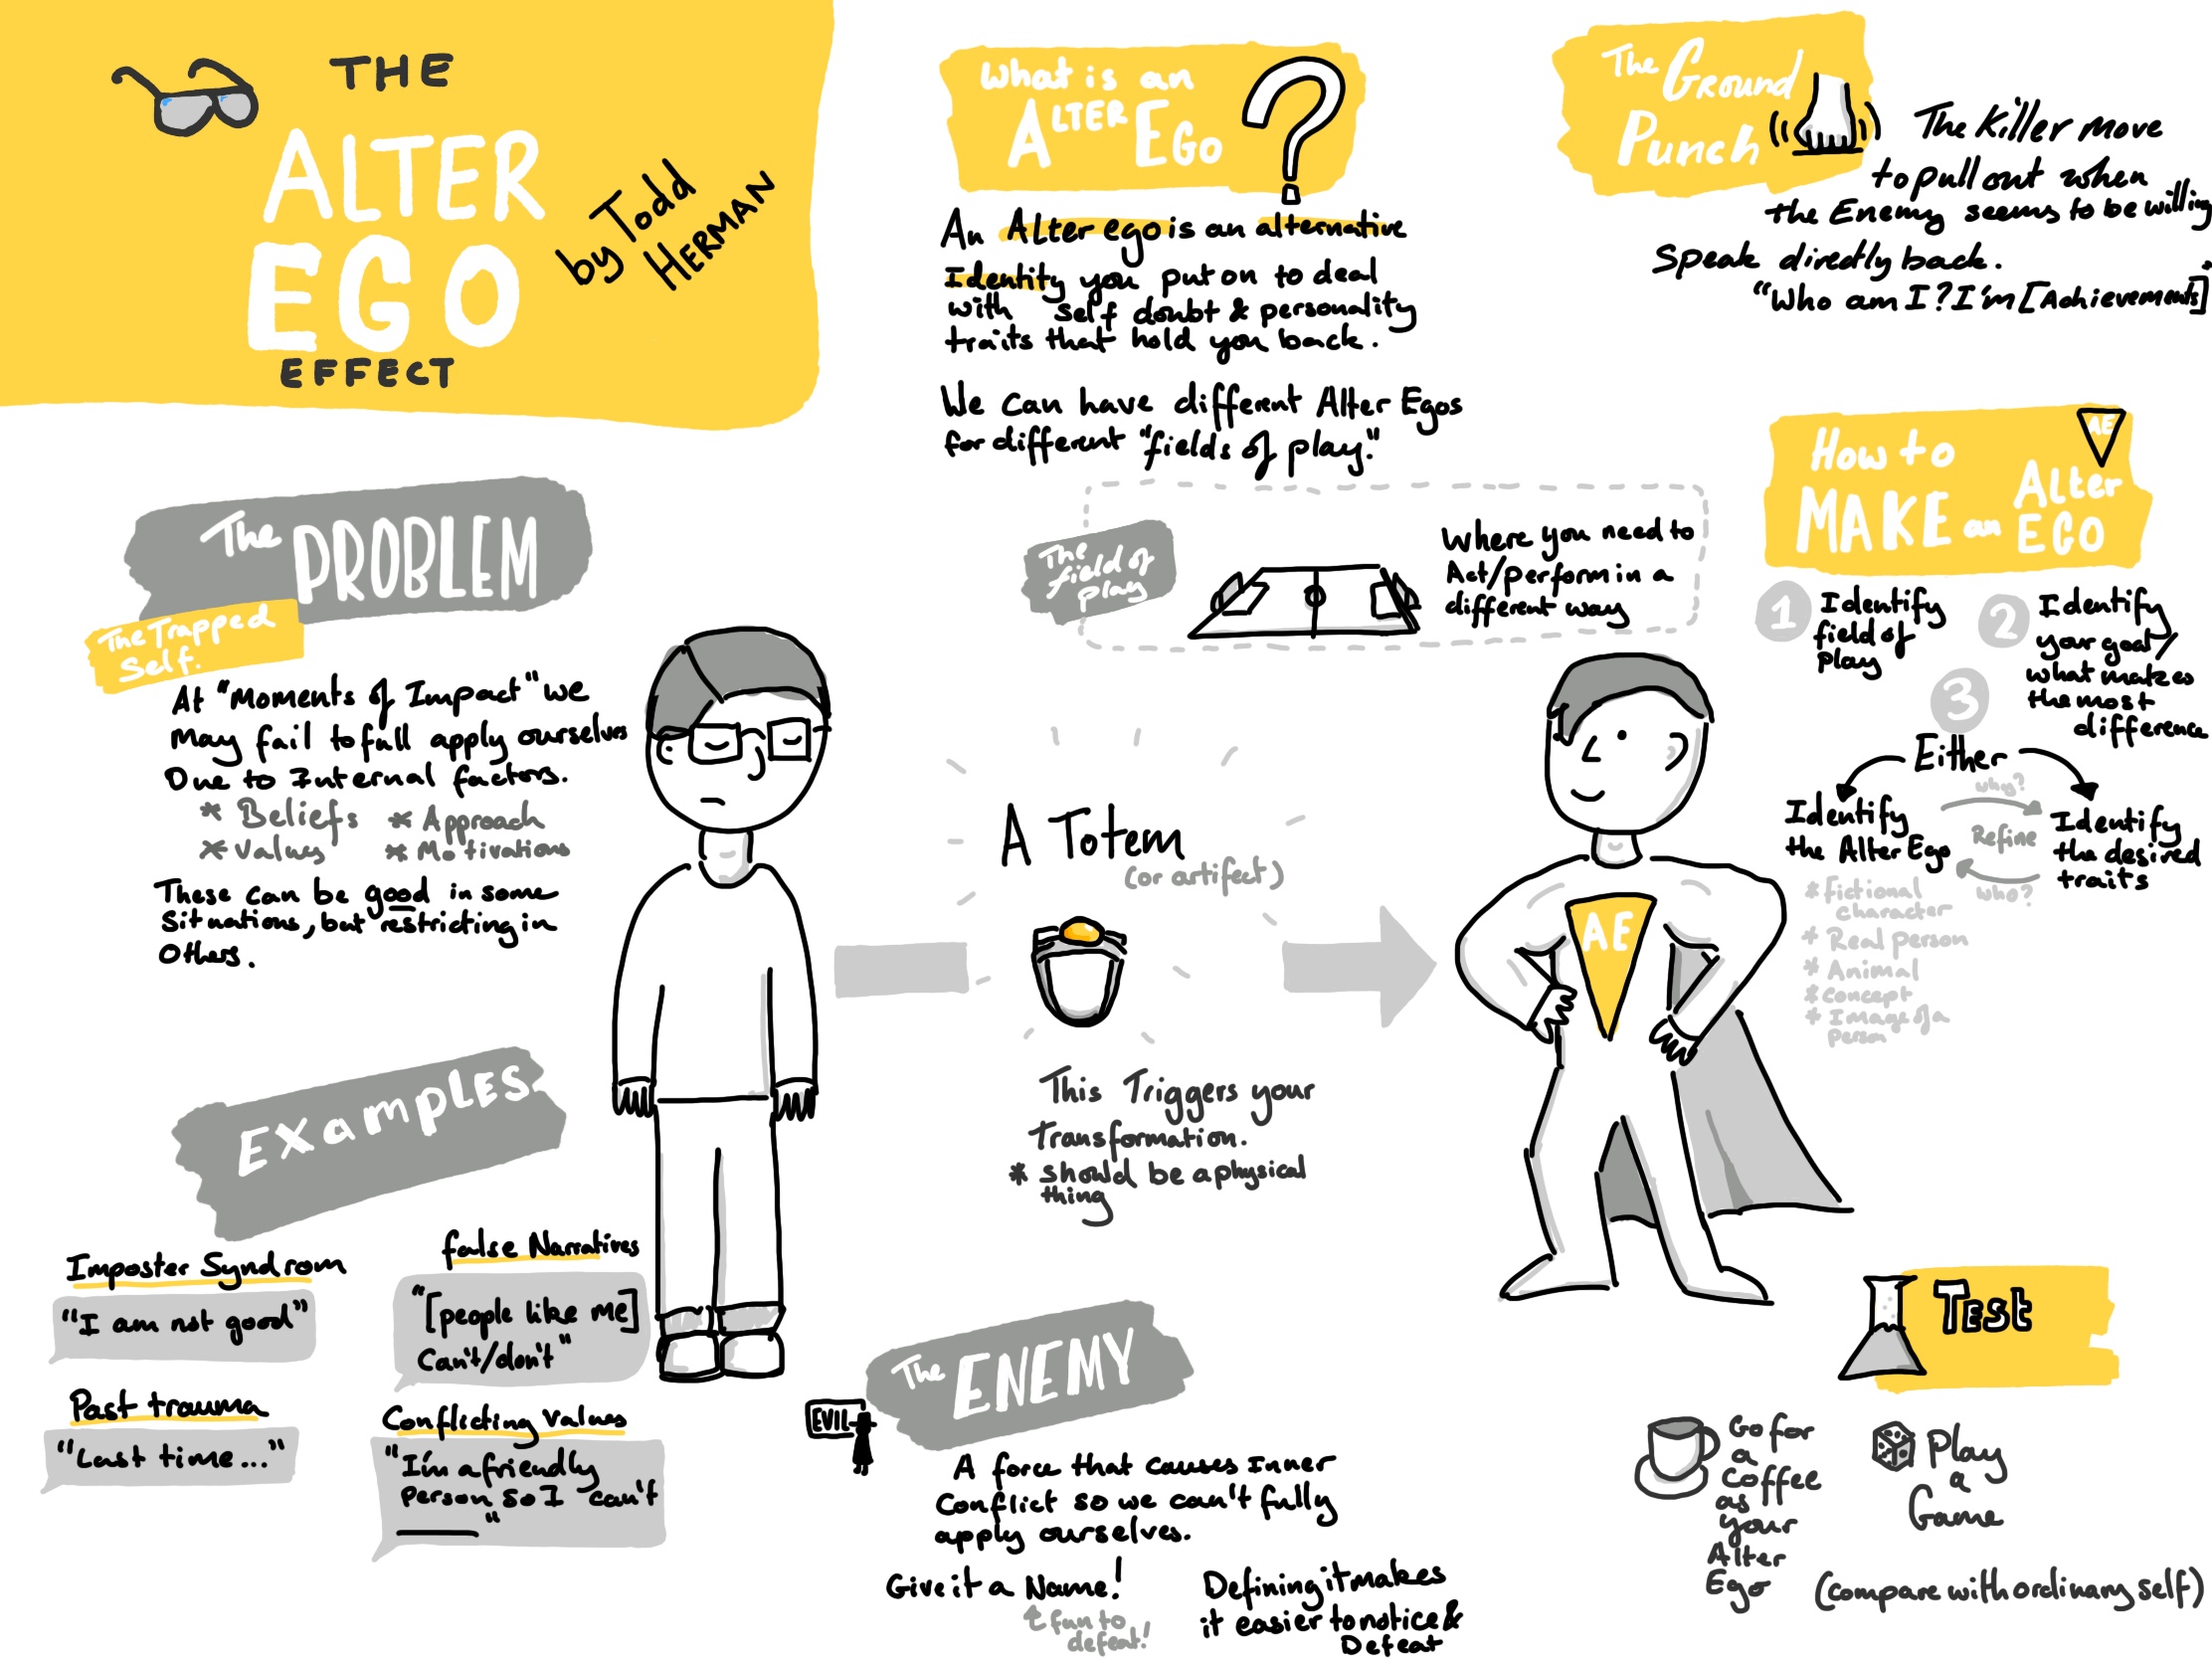 THE
ALTER
EGO
EFFECT
by Todd
HERMAN
What is an
ALTER EGO
?
An Alter ego is an alternative
Identity you put on to deal
with self doubt & personality
traits that hold you back.
We can have different Alter Egos
for different "fields of play."
The
field of
play
Where you need to
Act/perform in a
different way
The Ground
Punch
The Killer move
to pull out when
the Enemy seems to be willing
Speak directly back.
"Who am I? I'm [Achievements]
How to
MAKE an Alter
EGO
AE
1 Identify
field of
play
2 Identify
your goal/
what makes
the most
difference
3
Either
Identify
the Alter Ego
why?
Refine
who?
Identify
the desired
traits
* fictional
character
* Real person
* Animal
* concept
* Image of a
person
The PROBLEM
The Trapped
Self.
At "Moments of Impact" we
May fail to full apply ourselves
Due to Internal factors.
* Beliefs * Approach
* Values * Motivations
These can be good in some
Situations, but restricting in
Others.
A Totem
(or artifect)
This Triggers your
Transformation.
* should be a physical
thing
AE
Examples
Imposter Syndrom
"I am not good"
false Narratives
"[people like me]
Can't/don't"
Past trauma
"Last time..."
Conflicting values
"I'm a friendly
person so I can't
"
The ENEMY
EVIL
A force that causes Inner
Conflict so we can't fully
apply ourselves.
Give it a Name!
fun to
defeat!
Defining it makes
it easier to notice &
Defeat
Test
Go for
a
Coffee
as
your
Alter
Ego
Play
a
Game
(compare with ordinary self)